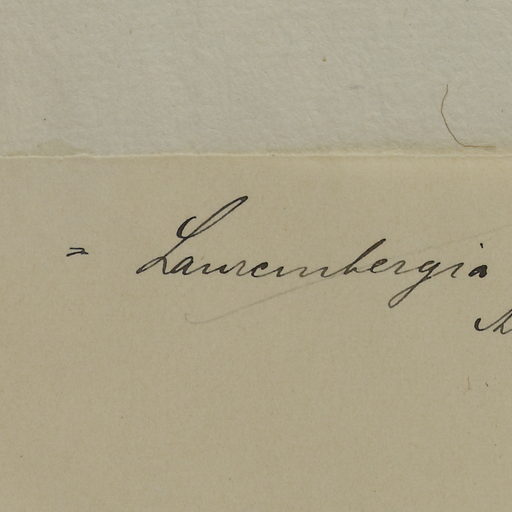 = Laurembergia